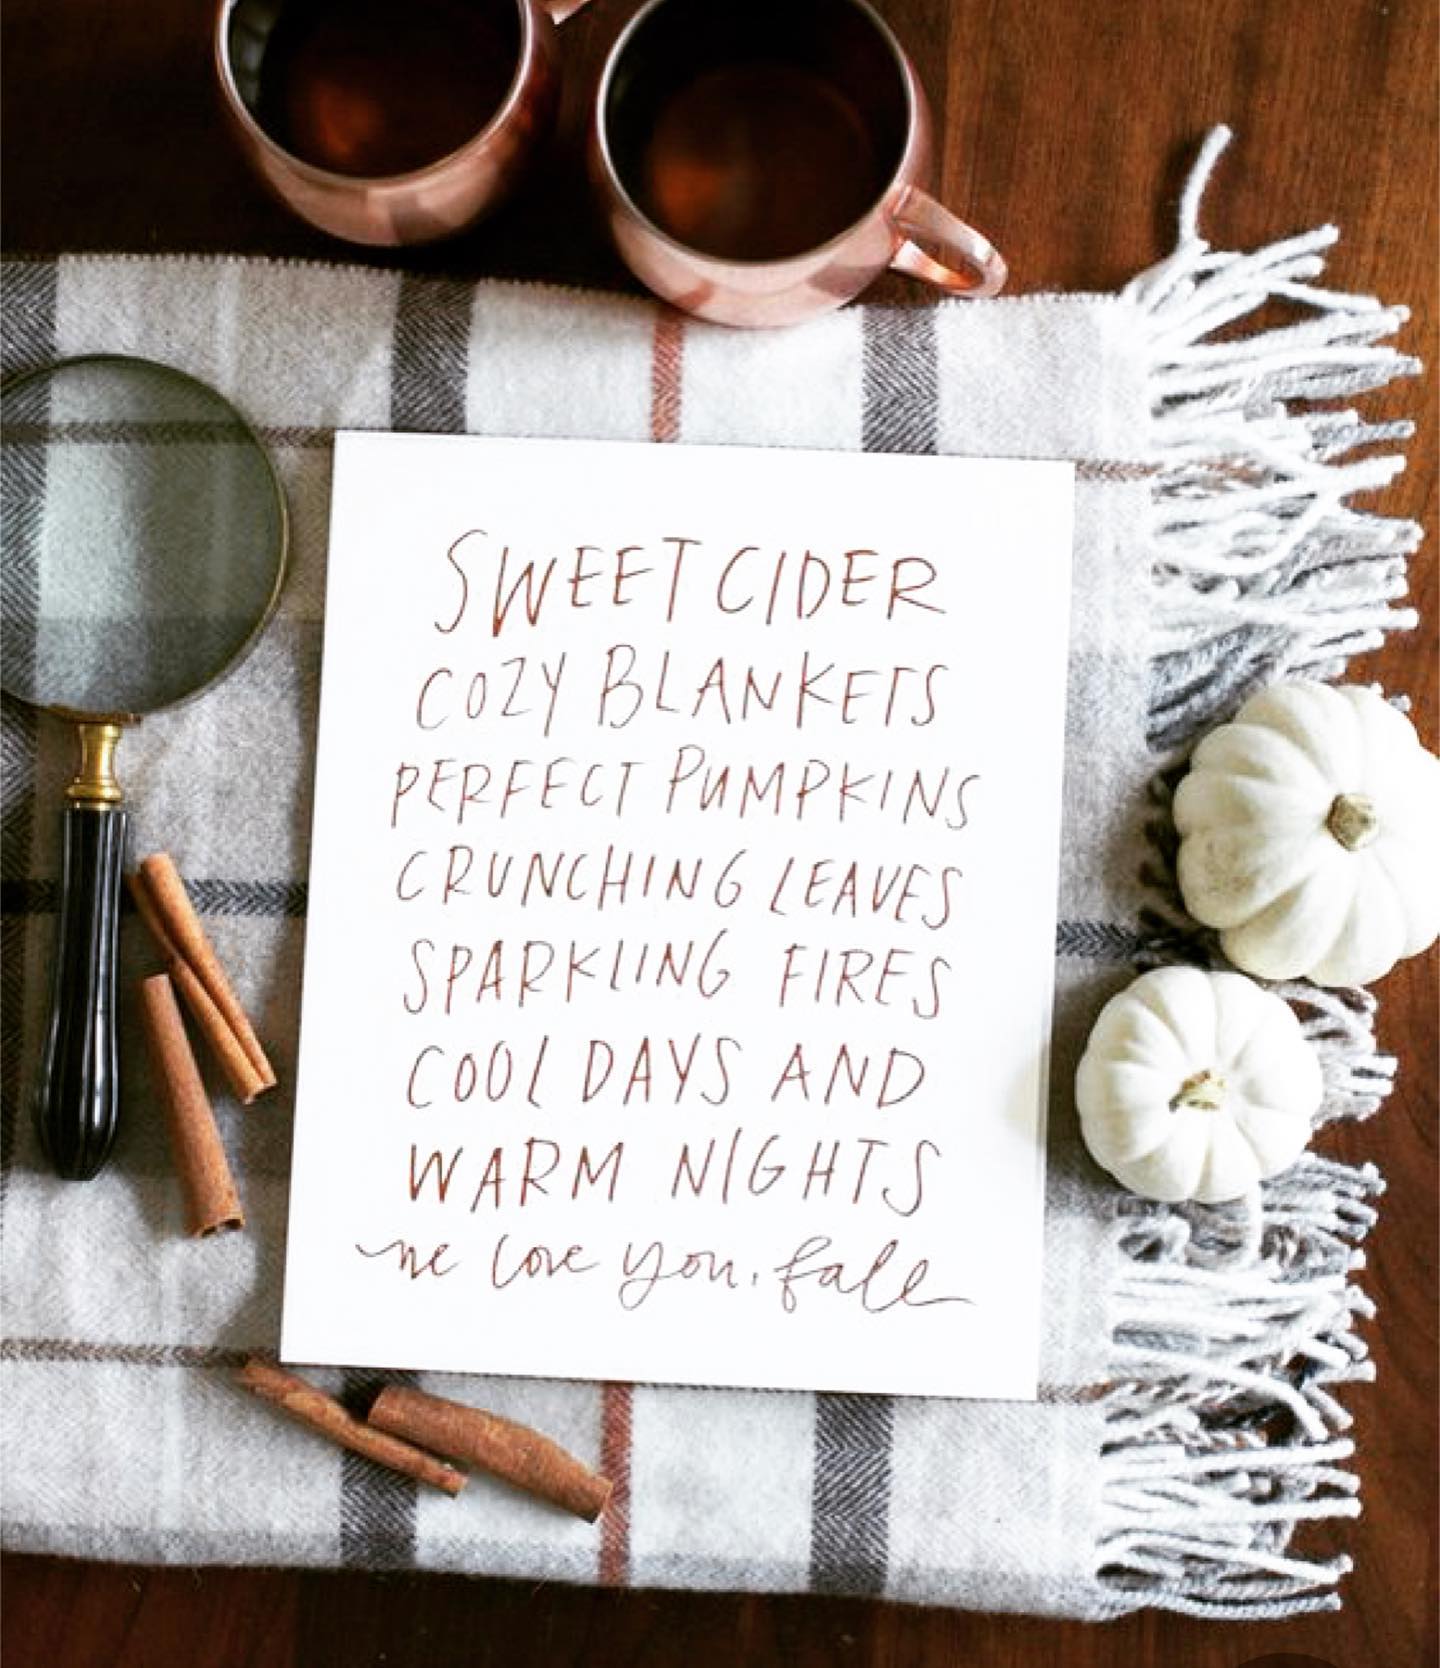 SWEET CIDER
COZY BLANKETS
PERFECT PUMPKINS
CRUNCHING LEAVES
SPARKLING FIRES
COOL DAYS AND
WARM NIGHTS
we love you, fall